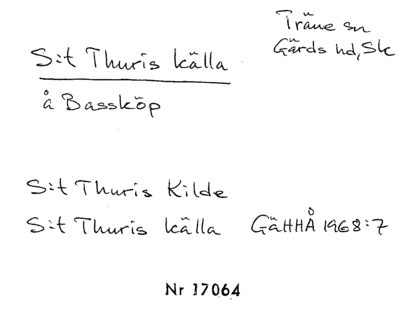 S:t Thuris källa
Träne sn
Gärds hd, Sk
å Bassköp
S:t Thuris Kilde
S:t Thuris källa GäHHÅ 1968:7
Nr 17064